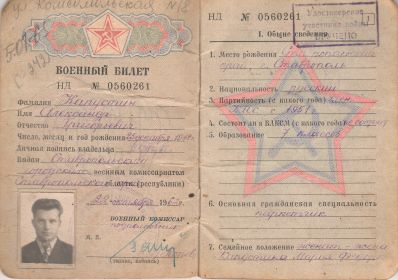 ул Комсомольская
ВОЕННЫЙ БИЛЕТ
НД № 0560261
Фамилия Капустин
Имя Александр
Отчество Григорьевич
Число, месяц и год рождения
Личная подпись владельца
Выдан Ставропольским
городским военным комиссариатом
Ставропольского края (республики)
196
ВОЕННЫЙ КОМИССАР
М. П.
НД № 0560261
Удостоверение
участника войны
I. Общие сведения
1. Место рождения
край, г. Ставрополь
2. Национальность русский
3. Партийность (с какого года) член
КПСС с 1951
4. Состоит ли в ВЛКСМ (с какого года) не состоит
5. Образование 7 классов
6. Основная гражданская специальность
паркетчик
7. Семейное положение женат - жена
Капустина Мария